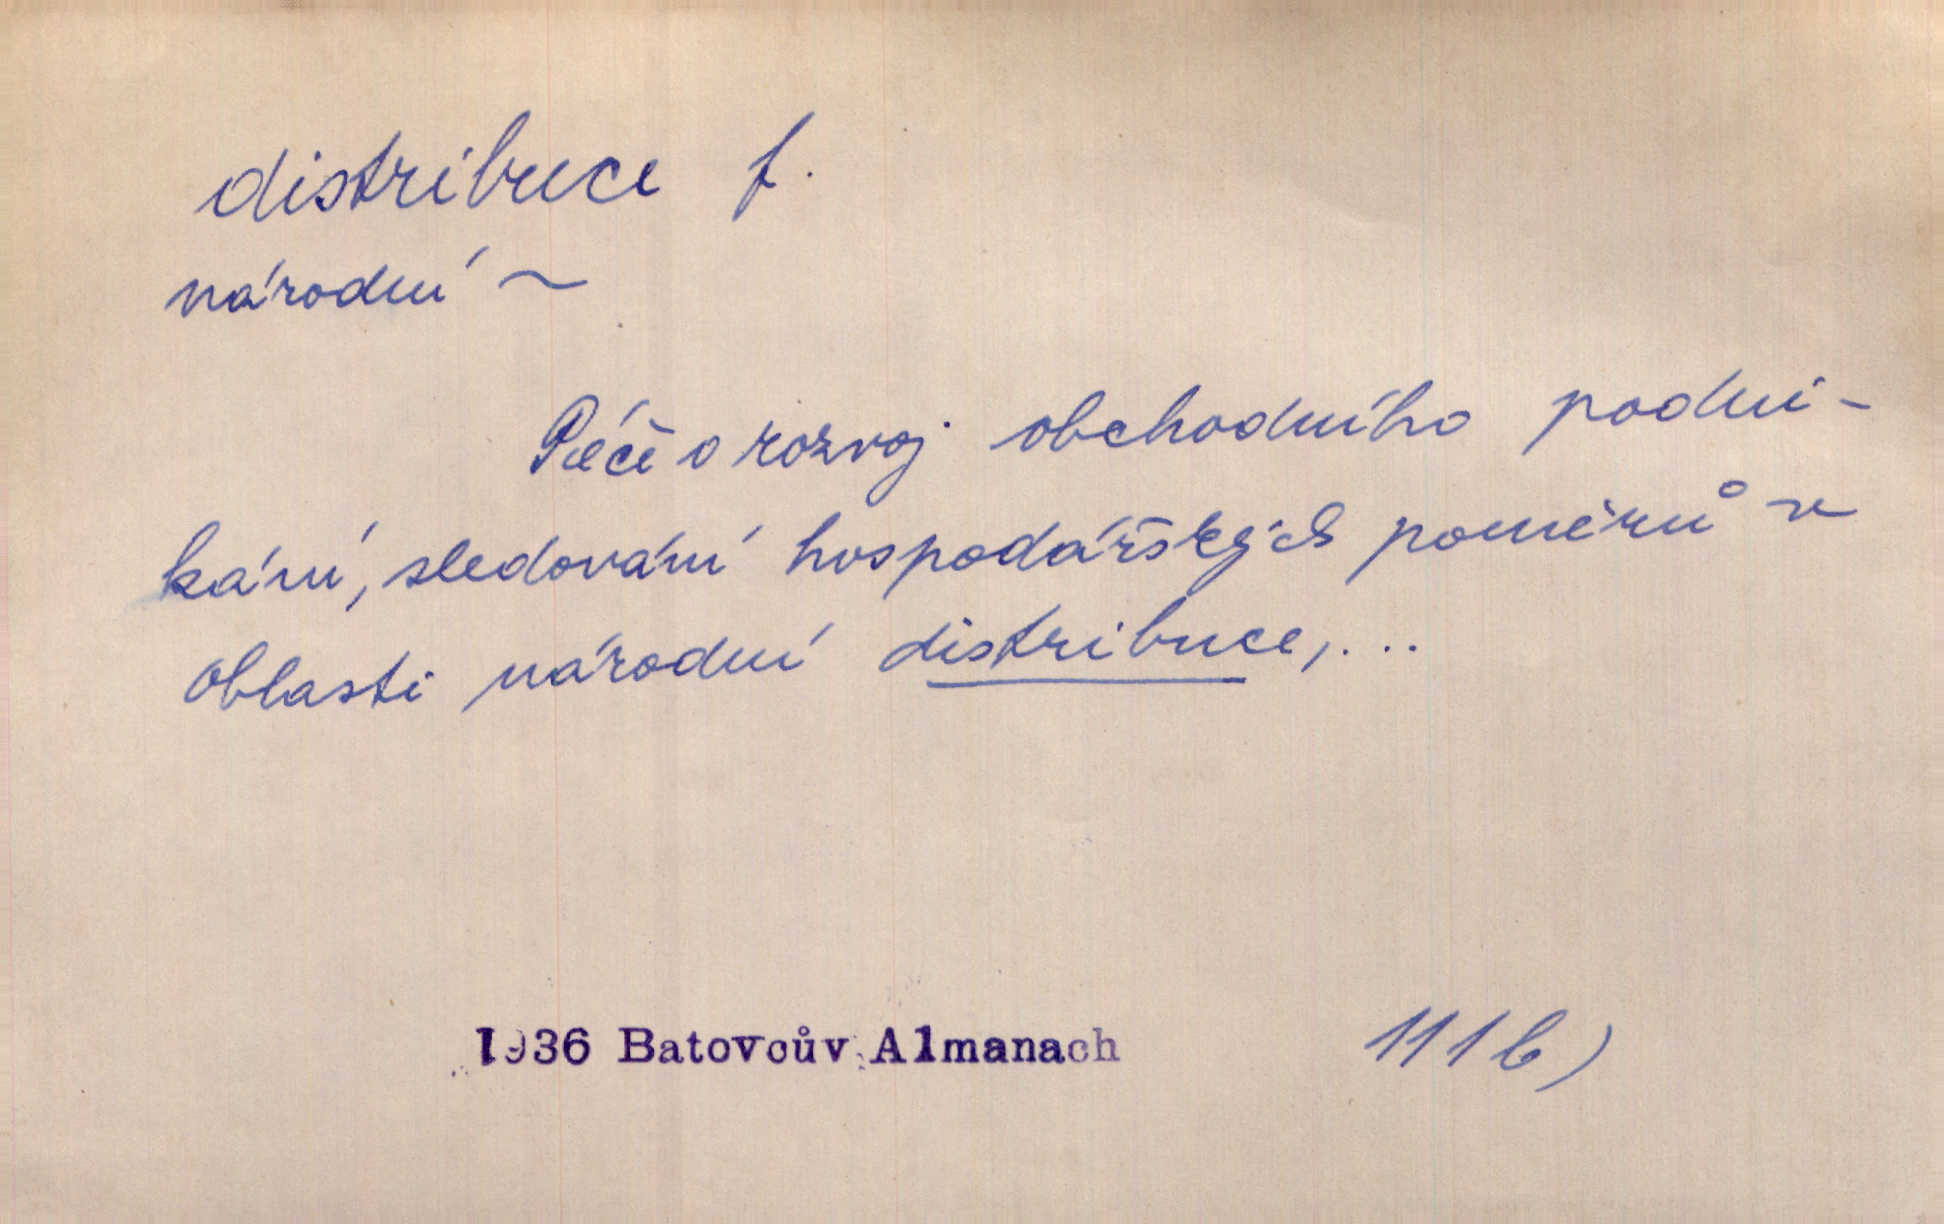 distribuce f.
národní ~
Péče o rozvoj obchodního podni-
kání, sledování hospodářských poměrů v
oblasti národní distribuce, ...
1936 Batovcův Almanach
111 b)